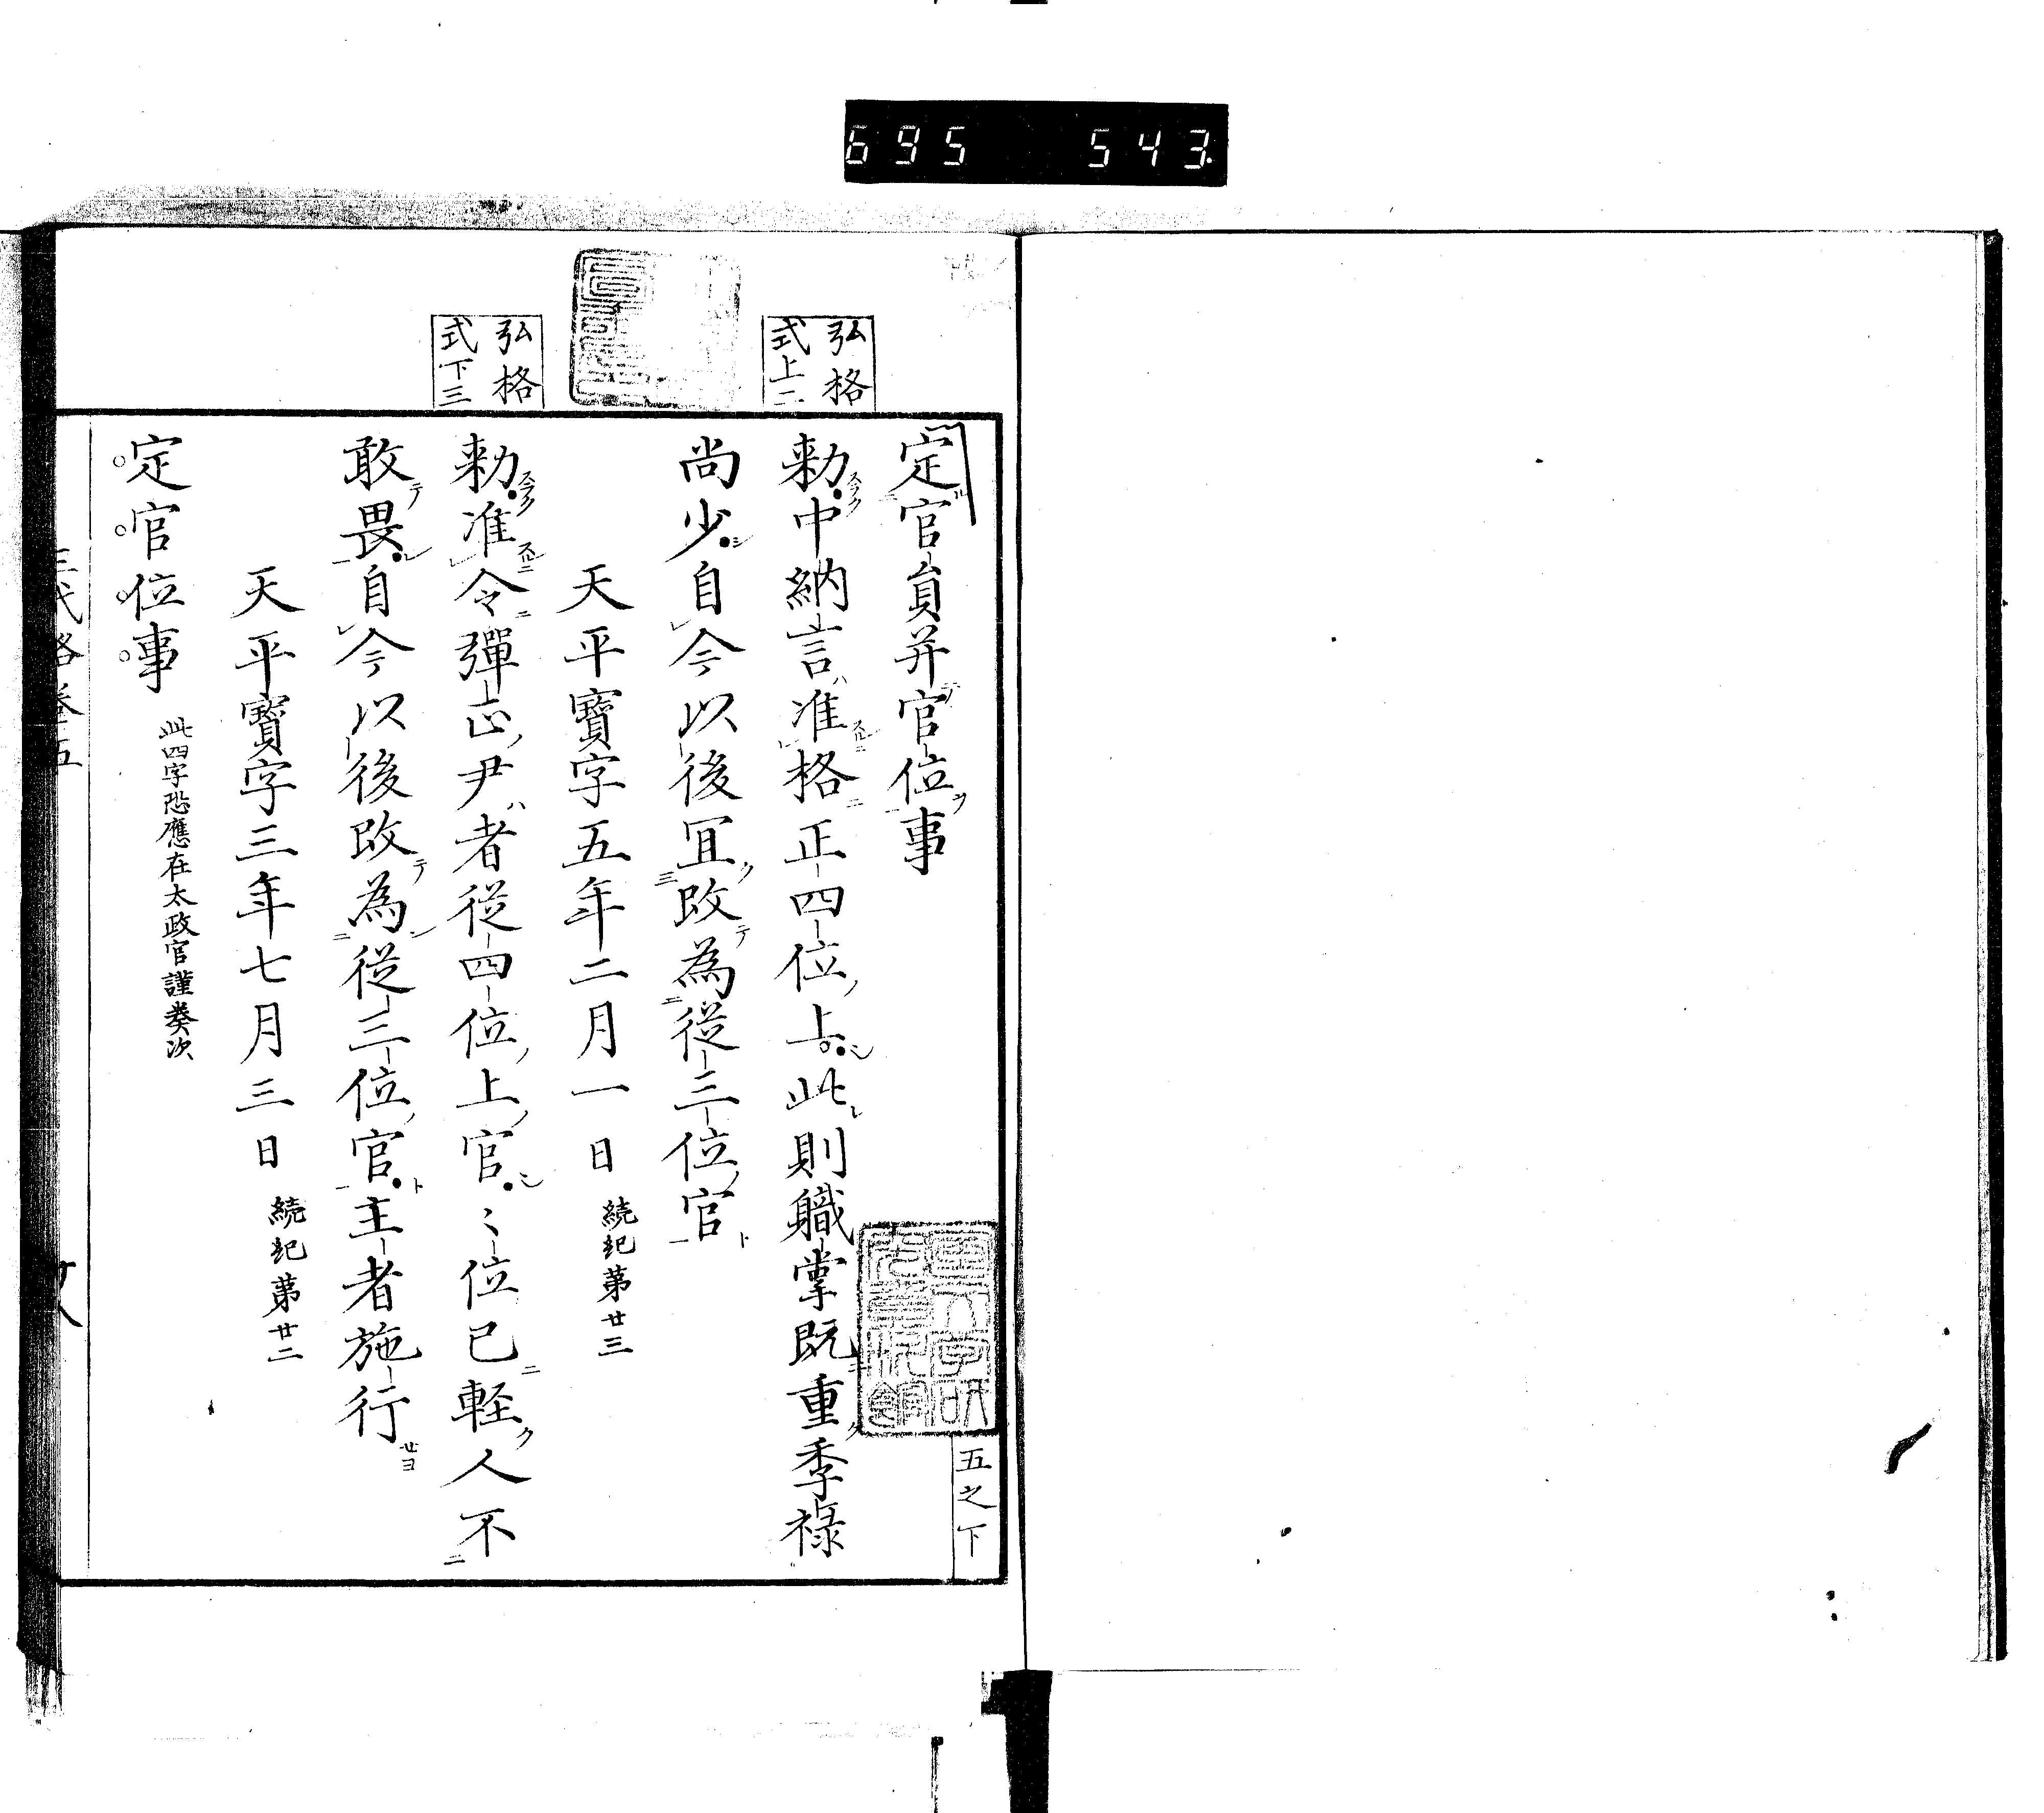 695 543
五之下
定官員并官位事
弘格
式上二
勅中納言准格正四位上此則職掌既重季祿
尚少自今以後冝改為従三位官
天平寶字五年二月一日 続紀第廿三
弘格
式下三
勅准令彈正尹者従四位上官〻位已軽人不
敢畏自今以後改為従三位官主者施行
天平寶字三年七月三日 続紀第廿二
定官位事 此四字恐應在太政官謹奏次
三代格巻五